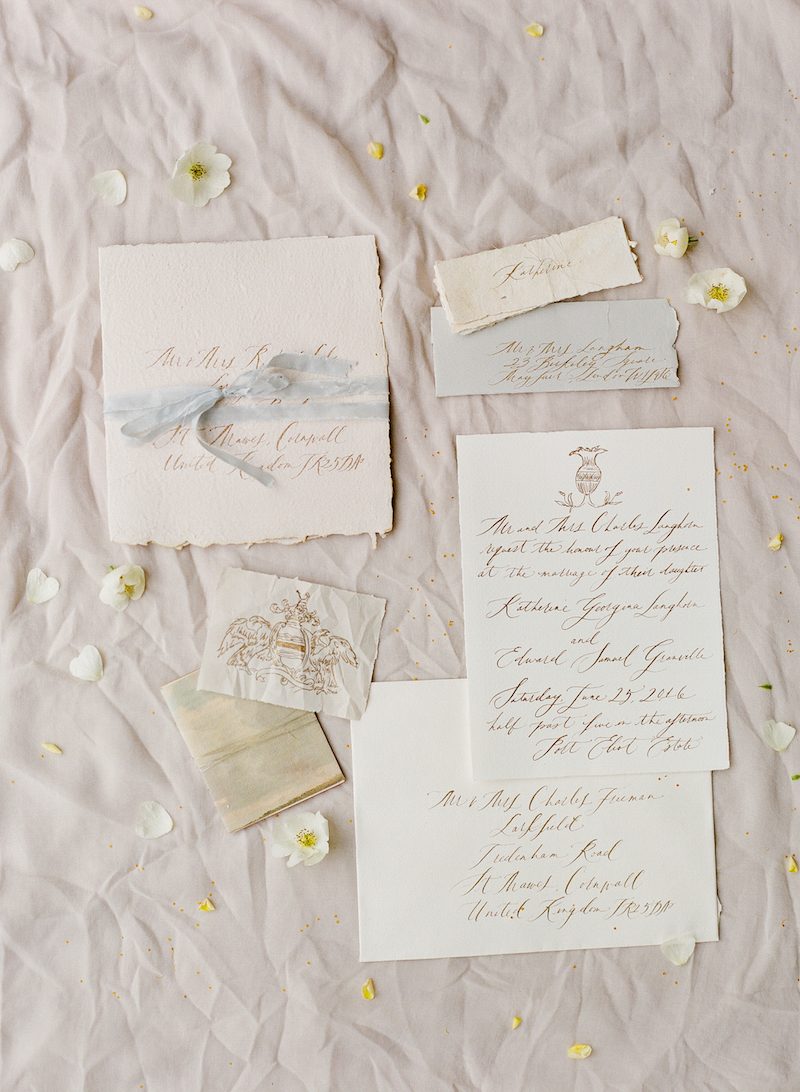 Katherine
Mr & Mrs Langham
23 Berkeley Square
Mayfair, London
Mr & Mrs
St Mawes, Cornwall
United Kingdom TR25DN
Mr and Mrs Charles Langhorn
request the honour of your presence
at the marriage of their daughter
Katherine Georgina Langhorn
and
Edward Samuel Granville
Saturday June 25, 2016
half past five in the afternoon
Port Eliot Estate
Mr & Mrs Charles Freeman
Tredenham Road
St Mawes, Cornwall
United Kingdom TR25DN